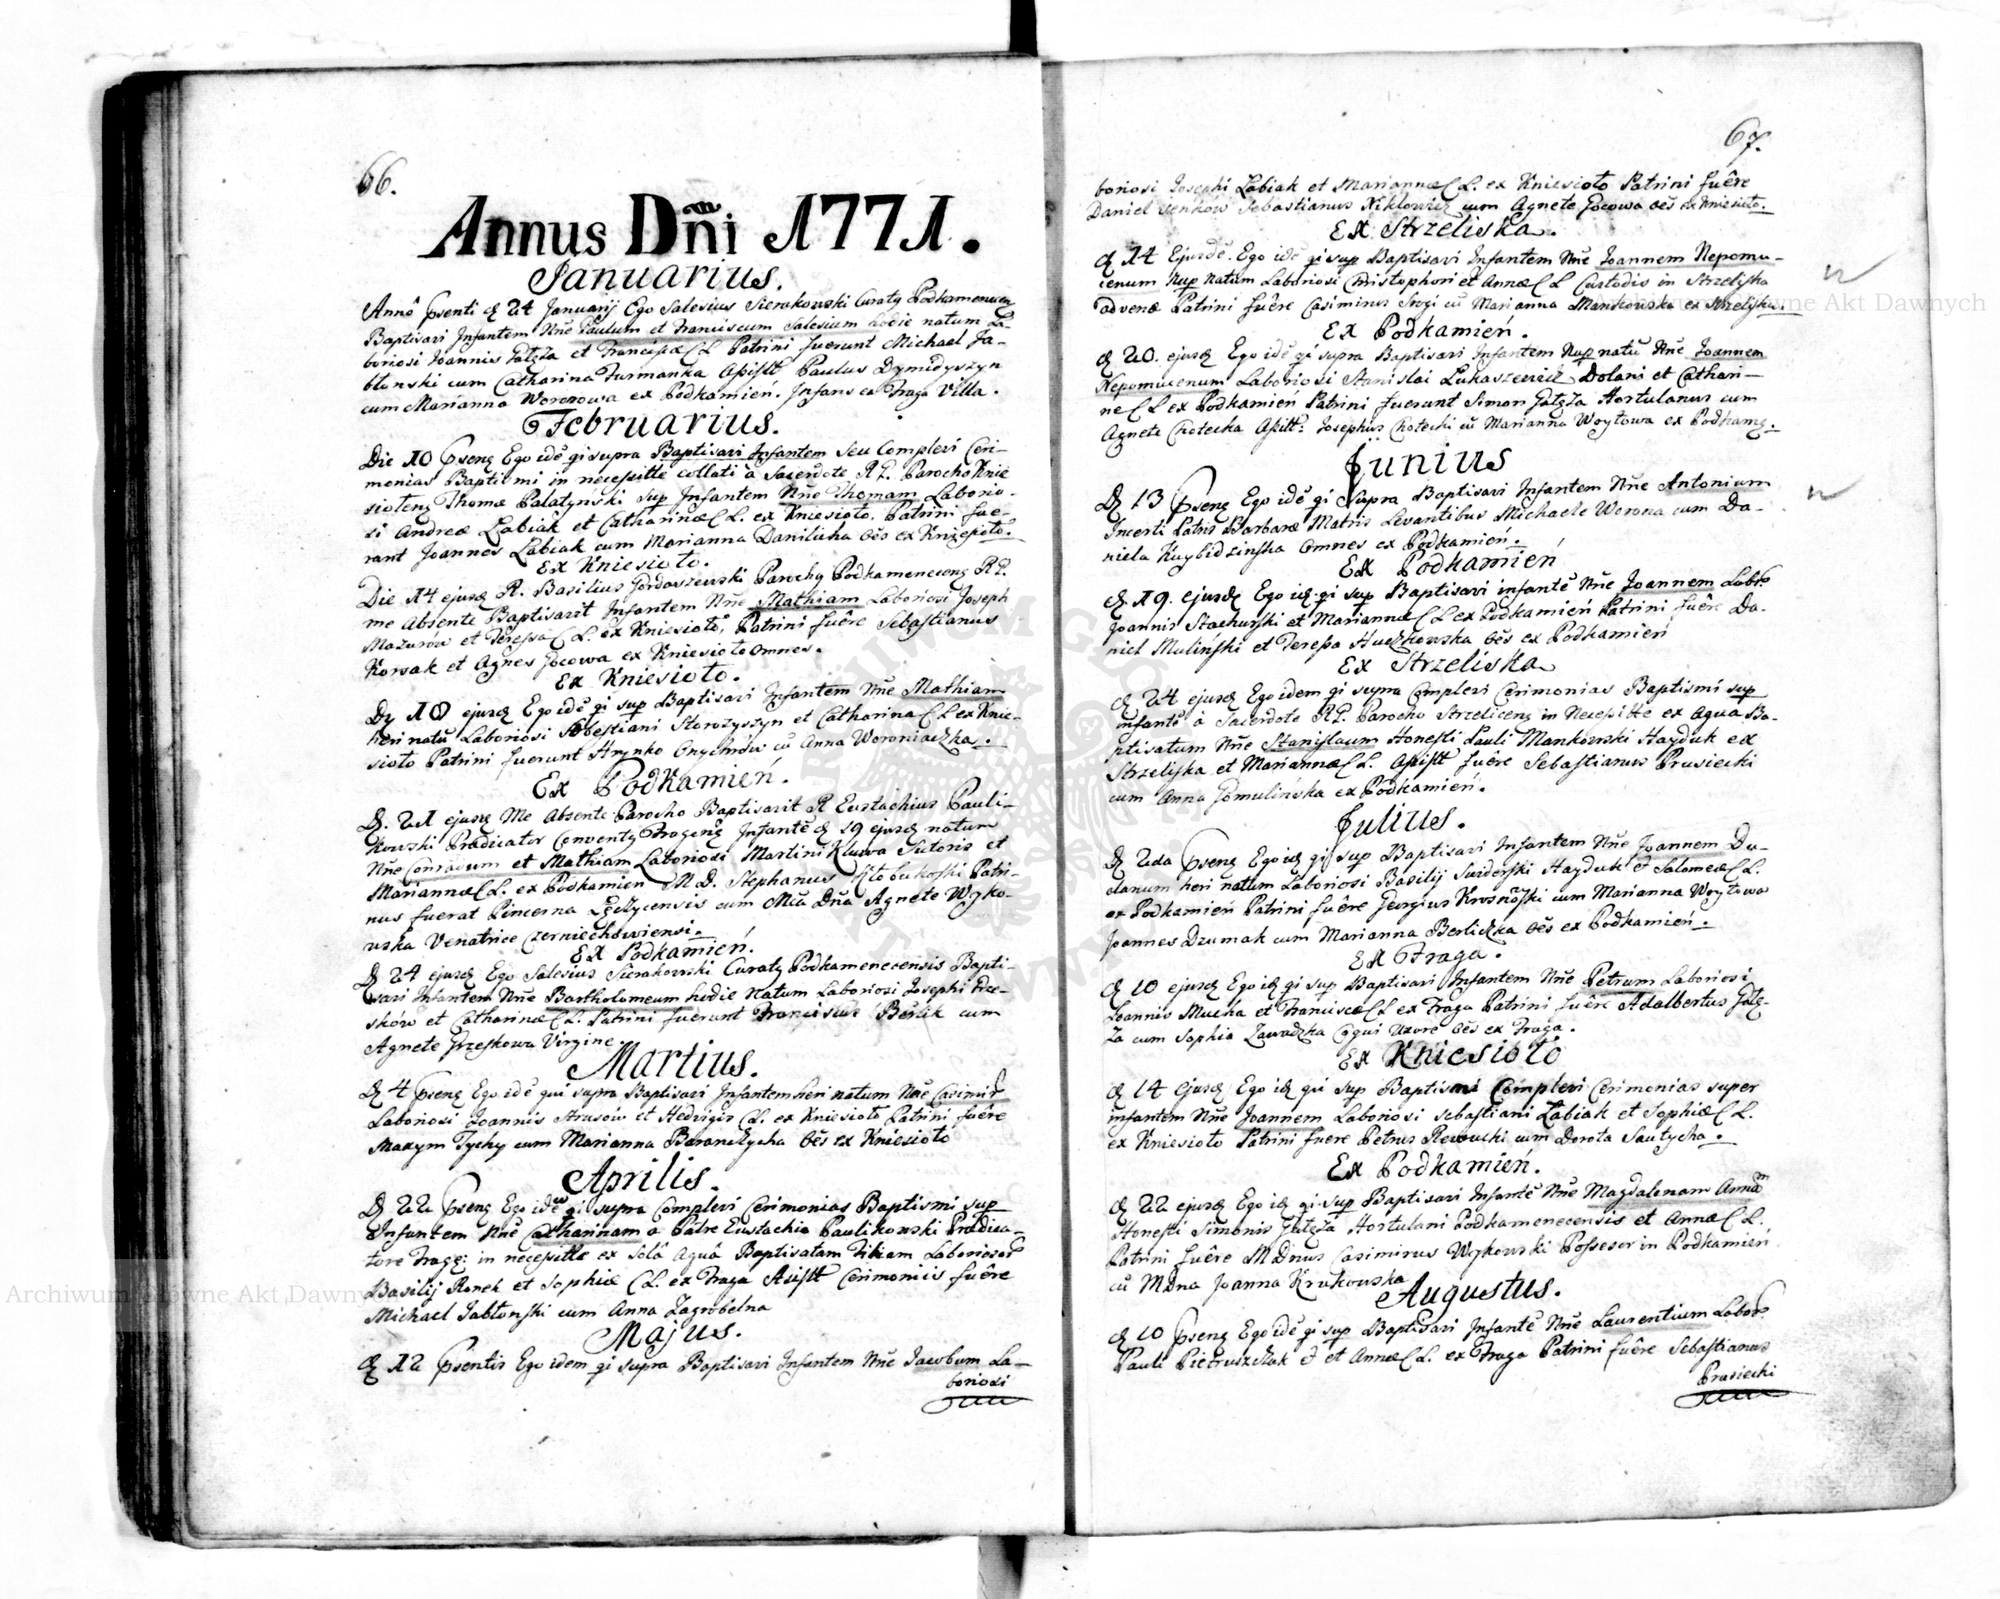 66.
Annus Dñi 1771.
Januarius.
Annô Psenti d 24 Januarij Ego Salesius Sierakowski Curatg Podkamenecen
Baptisavi Infantem Nñe Paulum et Franciscum Salesium hodie natum La-
boriosi Joannis Gałęza et Franciscæ C L Patrini fuerunt Michael Ja-
błonski cum Catharina Furmanka Assistt Paulus Dymidyszyn
cum Marianna Woronowa ex Podkamień. Infans ex Fraga Villa.
Februarius.
Die 10 Pseng Ego idē qi supra Baptisavi Infantem seu Complevi Ceri-
monias Baptismi in necessitte collati à Sacerdote R P. Parocho Knie
sioteng Thoma Palatynski sup Infantem Nñe Thomam Laborio-
si Andreæ Łabiak et Catharinæ C L. ex Kniesioło. Patrini fue-
rant Joannes Łabiak cum Marianna Daniluha oēs ex Kniesioło.
Ex Kniesioło.
Die 14 ejusd R. Basilius Gordaszewski Parochg Podkameneceng R P.
me Absente Baptisavit Infantem Nñe Mathiam Laboriosi Joseph
Mazurów et Teressa C L. ex Kniesioło, Patrini fuêre Sebastianus
Korsak et Agnes Jocowa ex Kniesioło omnes.
Ex Kniesioło.
Dg 18 ejusd Ego idē qi sup Baptisavi Infantem Nñe Mathiam
heri natū Laboriosi Sebestiani Storozyszyn et Catharina C L ex Knie-
sioło Patrini fuerunt Hrynko Onychrów cū Anna Woroniaczka.
Ex Podkamień.
D. 21 ejusd Me Absente Parocho Baptisavit R Eustachius Pauli-
kowski Prædicator Conventg Frageng Infantē d 19 ejusd natum
Nñe Conradum et Mathiam Laboriosi Martini Kluwa Sutoris et
Mariannæ C L. ex Podkamien M D. Stephanus Patri-
nus fuerat Pincerna Łęczycensis cum Mcū Dña Agnete Wyko-
wska Venatrice Czerniechowiensi.
Ex Podkamień.
D 24 ejusd Ego Salesius Sierakowski Curatg Podkamenecensis Bapti-
savi Infantem Nñe Bartholomeum hodie natum Laboriosi Josephi Hre-
sków et Catharinæ C L. Patrini fuerunt Franciscus Berlik cum
Agnete Grzeskowa Virgine
Martius.
d 4 Pseng Ego idē qui supra Baptisavi Infantem heri natum Nñe Casimir
Laboriosi Joannis Strusów et Hedvigis C L. ex Kniesioło Patrini fuêre
Maxym Tychy cum Marianna Baranczycha oēs ex Kniesioło
Aprilis.
D 22 Pseng Ego idē qi supra Complevi Cerimonias Baptismi sup
Infantem Nñe Catharinam a Patre Eustachia Paulikowski Prædica-
tore Frage: in necessitte ex solâ Aquâ Baptisatam Filiam Laboriosor
Basilij Ronek et Sophiæ C L. ex Fraga Assistt Cerimoniis fuêre
Michael Jabłonski cum Anna Zagrobelna
Majus.
d 12 Psentis Ego idem qi supra Baptisavi Infantem Nñe Jacobum La-
boriosi
67.
boriosi Josephi Łabiak et Mariannæ C L. ex Kniesioło Patrini fuêre
Daniel Senków Sebastianus Niklowicz cum Agnete Jocowa oēs ex Kniesioło.
Ex Strzeliska.
d 14 Ejusdē. Ego idē qi sup Baptisavi Infantem Nñe Joannem Nepomu-
cenum Nup natum Laboriosi Christophori et Annæ C L Custodis in Strzeliska
advenæ Patrini fuêre Casimirus Srogi cū Marianna Mankowska ex Strzeliska.
Ex Podkamień.
d 20. ejusd Ego idē qi supra Baptisavi Infantem Nup natū Nñe Joannem
Nepomucenum Laboriosi Stanislai Łukaszewicz Dolani et Cathari-
ne C L ex Podkamien Patrini fuerunt Simon Gałęza Hortulanus cum
Agnete Chotecka Assitt: Josephus Chotecki cū Marianna Woytowa ex Podkamg.
Junius
D 13 Pseng Ego idē qi Supra Baptisavi Infantem Nñe Antonium
Incerti Patris Barbaræ Matris Levantibus Michaele Worona cum Da-
niela Kuybidzinska Omnes ex Podkamien.
Ex Podkamień
d. 19. ejusd Ego id qi sup Baptisavi infantē Nñe Joannem Labr
Joannis Stachurski et Mariannæ C L ex Podkamień Patrini fuêre Da-
niel Muliński et Teressa Huczkowska oēs ex Podkamień
Ex Strzeliska
d 24 ejusd Ego idem qi supra Complevi Cerimonias Baptismi sup
infantē à Sacerdote R P. Parocho Strzeliceng in Necessitte ex Aqua Ba-
ptisatum Nñe Stanislaum Honesti Pauli Mankowski Hayduk ex
Strzeliska et Mariannæ C L. Assistt fuere Sebastianus Prusiecki
cum Anna Gomulińska ex Podkamień.
Julius.
D 2da Pseng Ego id qi sup Baptisavi Infantem Nñe Joannem Du-
clanum heri natum Laboriosi Basilij Swiderski Hayduk & Salomeæ C L.
ex Podkamień Patrini fuêre Georgius Krosnowski cum Marianna Woytowa
Joannes Dzumak cum Marianna Berliczka oēs ex Podkamień.
Ex Fraga.
d 10 ejusd Ego id qi sup Baptisavi Infantem Nñe Petrum Laboriosi
Joannis Mucha et Franciscæ C L ex Fraga Patrini fuêre Adalbertus Gałę-
za cum Sophia Zawadzka Coqui Uxore oēs ex Fraga.
Ex Kniesioło
d 14 Ejusd Ego id qui sup Baptismi Complevi Cerimonias super
infantem Nñe Joannem Laboriosi Sebastiani Łabiak et Sophiæ C L.
ex Kniesioło Patrini fuere Petrus Rewucki cum Dorota Sautycha.
Ex Podkamień.
d 22 ejusd Ego id qi sup Baptisavi Infantē Nñe Magdalenam Annam
Honesti Simonis Gałęza Hortulani Podkamenecensis et Annæ C L.
Patrini fuêre M Dnus Casimirus Wykowski Possesor in Podkamien
cū MDna Joanna Krukowska
Augustus.
d 10 Pseng Ego idē qi sup Baptisavi Infantē Nñe Laurentium Labor
Pauli Pietruszczak & et Annæ C L. ex Fraga Patrini fuêre Sebastianus
Prusiecki
Archiwum Główne Akt Dawnych
Archiwum Główne Akt Dawnych